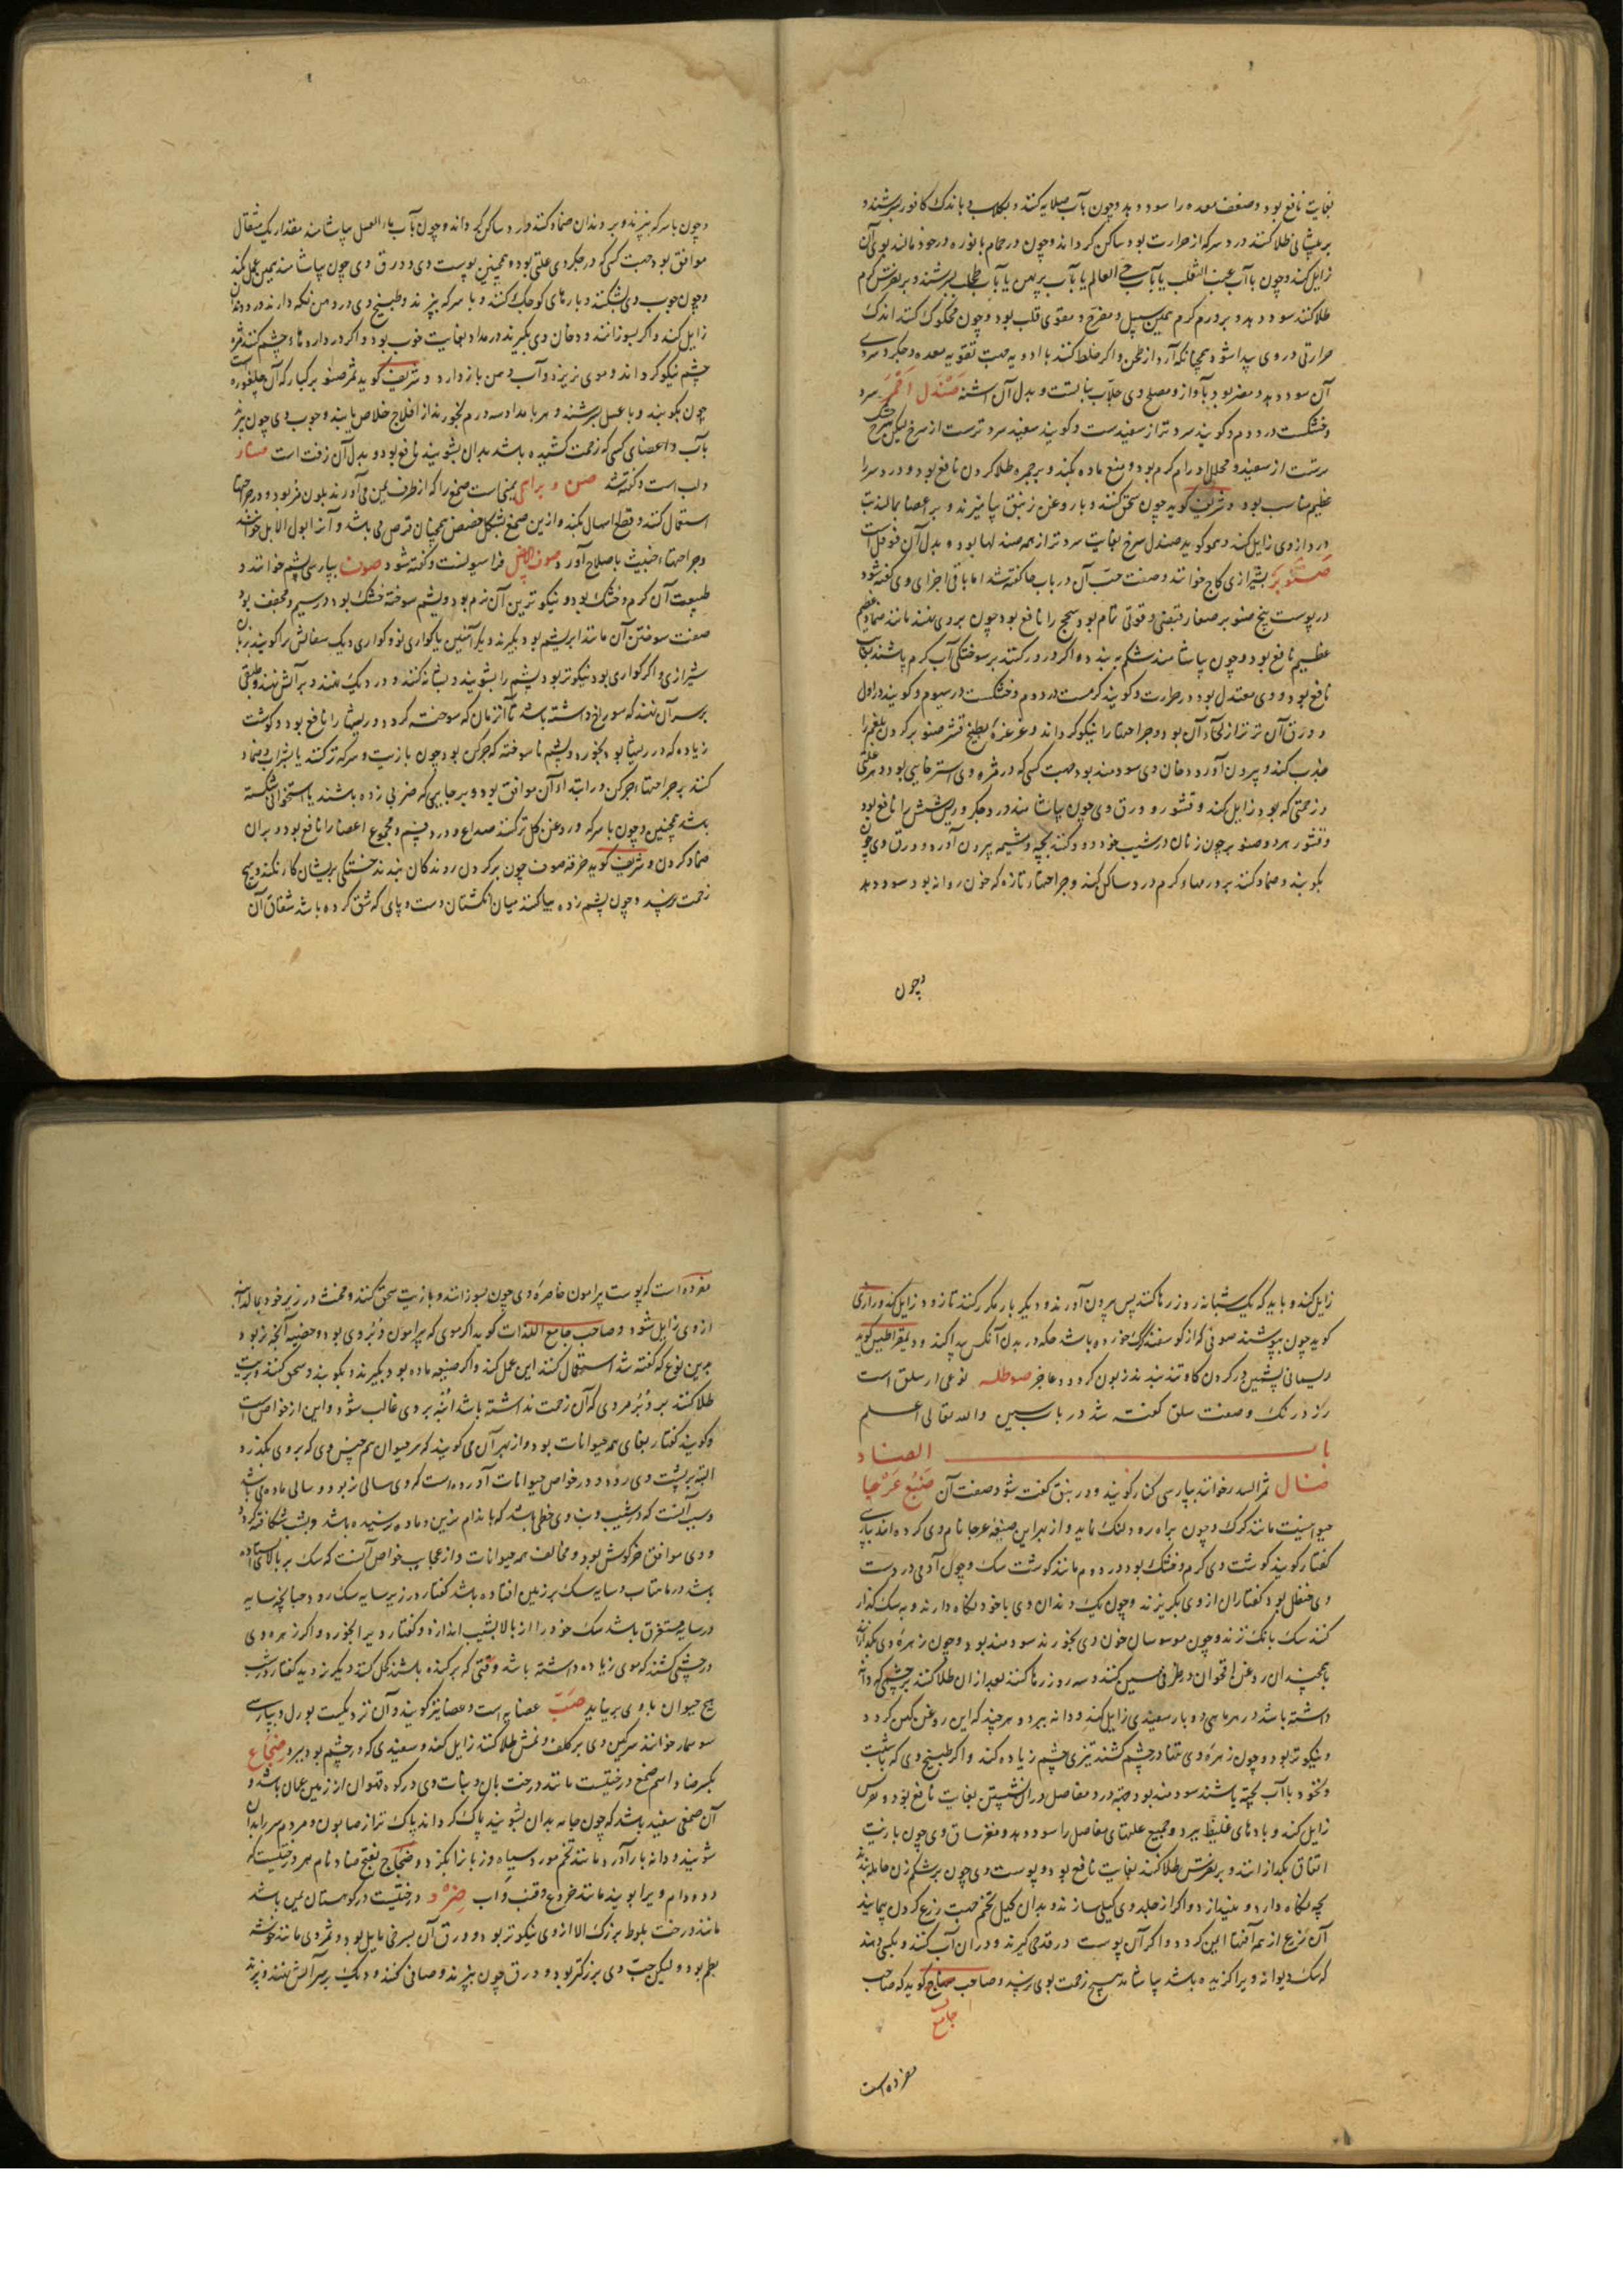 بغایت نافع بود و ضعف معده را سود دهد و چون بآب صلایه کنند و بکلاب و باندک کافور بسرشند و
بر پیشانی طلا کنند درد سر که از حرارت بود ساکن کرداند و چون در حمام با نوره در خود مالند بوی آن
زایل کند و چون باآب عنب الثعلب یا بآب حی العالم یا بآب برپهن یا بآب طحلب بسرشند و بر نقرس کرم
طلا کنند سود دهد و بر ورم کرم همین سبیل و مفرح و مقوی قلب بود و چون محکوک کنند اندک
حرارتی در وی پیدا شود همچنانکه آرد از طحن و اکر خلط کنند با ادویه جهت تقویه معده و جکر سردی
آن سود دهد و مضر بود بآواز و مصلح وی جلاب نباتست و بدل آن اشنه صندل احمر سرد
و خشکست در دوم و کویند سردتر از سفیدست و کویند سفید سردترست از سرخ لیکن سرخ خشک
ترست از سفید و محلل اورام کرم بود و منع ماده بکند و بر جمره طلا کردن نافع بود و درد سر را
عظیم مناسب بود و شریف کوید چون سحق کنند و با روغن زنبق بیامیزند و بر اعضا بمالند تب
درد از وی زایل کند و همو کوید صندل سرخ بغایت سردتر از همه صندلها بود و بدل آن فوفل است
صنوبر بشیرازی کاج خوانند و صفت حب آن در باب حا کفته شد اما باقی اجزای وی کفته شود
در پوست بیخ صنوبر صغار قبضی و قوتی تمام بود سحج را نافع بود چون بر وی نهند مانند ضماد و غیره
عظیم نافع بود و چون بیاشامند شکم ببندد و اکر ذرور کنند بر سوختکی آب کرم پاشند بغایت
نافع بود و وی معتدل بود در حرارت و کویند کرمست در دوم و خشکست در سیوم و کویند در اول
و ورق آن تر تر از لحاء آن بود و جراحتها را نیکو کرداند و غرغره بطبیخ قشر صنوبر کردن بلغم را
جذب کند و بیرون آورد و دخان وی سودمند بود جهت کسی که در مژه وی استرخایی بود و هر علتی
و زحمتی که بود زایل کند و قشور و ورق وی چون بیاشامند درد جکر و ریش شش را نافع بود
و قشور هر دو صنوبر چون زنان در شیب خود دود کنند بچه و مشیمه بیرون آورد و ورق وی چون
بکوبند و ضماد کنند بر ورمهاء کرم درد ساکن کند و جراحتهاء تازه که خون روانه بود سود دهد
وچون
و چون با سرکه بپزند و بر دندان ضماد کنند درد ساکن کرداند و چون بآب یا ماء العسل بیاشامند مقدار یک مثقال
موافق بود جهت کسی که در جکر وی علتی بود و همچنین پوست وی و ورق وی چون بیاشامند همین عمل کند
و چون چوب وی بشکنند و بپارهای کوچک کنند و با سرکه بپزند و طبیخ وی در دهن نکه دارند درد دندان
زایل کند و اکر بسوزانند و دخان وی بکیرند در مداد بغایت خوب بود و اکر در داروهاء چشم کنند مژه
چشم نیکو کرداند و موی نریزد و آب دمعه باز دارد و شریف کوید ثمر صنوبر کبار که آن جلغوزه است
چون بکوبند و با عسل بسرشند و هر بامداد سه درم بخورند از افلاج خلاص یابند و چوب وی چون بپزند
بآب و اعضای کسی که زحمت کشیده باشد بدان بشویند نافع بود و بدل آن زفت است صنار
دلب است و کفته شد صن و برای یمنی است صمغ را که از طرف یمن می آورند بلون مر بود و در جراحتها
استعمال کنند و قطع اسهال بکند و از این صمغ بشکل حضض همچنان قرص می باشد و آنرا بول الابل خوانند
و جراحتهاء خبیث باصلاح آورد صوف الارض فراسیونست و کفته شود صوف بپارسی پشم خوانند و
طبیعت آن کرم و خشک بود و نیکوترین آن نرم بود و پشم سوخته خشک بود در سیم و مجفف بود
صفت سوختن آن مانند ابریشم بود بکیرند دیکر آهنین یا کواری نو و کواری دیک سفالین را کویند بزبان
شیرازی و اکر کواری بود نیکوتر بود پشم را بشویند و بشانه کنند و در دیک نهند و بر آتش نهند و طبقی
بر سر آن نهند که سوراخ داشته باشد تا آنزمان که سوخته کردد و ریشها را نافع بود و کوشت
زیاده که در ریشها بود بخورد و پشم ناسوخته که چرکن بود چون با زیت و سرکه تر کنند یا بشراب و ضماد
کنند بر جراحتهاء چرکن در ابتداء آن موافق بود و بر جایی که ضربی زده باشند یا استخوانی شکسته
باشد همچنین و چون با سرکه و روغن کل تر کنند صداع و درد چشم و مجموع اعضا را نافع بود بدان
ضماد کردن و شریف کوید خرقه صوف چون بر کردن روندکان بندند خستکی بر ایشان کار نکند و هیچ
زحمت نرسد و چون پشم زده بیاکنند میان انکشتان دست و پای که شق کرده باشد شقاق آن
زایل کند و باید که یک شبانه روز رها کنند پس بیرون آورند و دیکر بار مکرر کنند تا زود زایل کند و رازی
کوید چون بپوشند صوفی که از کوسفند کرک خورده باشد حکه در بدن آنکس پیدا کند و دیمقراطیس کوید
ریسمانی پشمین در کردن کاو تند بندند زبون کردد و عاجز صوطله نوعی از سلق است
زرد رنک و صفت سلق کفته شد در باب سین والله تعالی اعلم
باب الضاد
ضال ثمر السدر خوانند بپارسی کنار کویند و در نبق کفته شود صفت آن ضبع عرجا
حیوانیست مانند کرک و چون براه رود لنک نماید و از بهر این ضبعه عرجا نام وی کرده اند بپارسی
کفتار کویند کوشت وی کرم و خشک بود در دوم مانند کوشت سک و چون آدمی در دست
وی حنظل بود کفتاران از وی بکریزند و چون یک دندان وی با خود نکاه دارند و به سک کذار
کنند سک بانک نزند و چون موسوسان خون وی بخورند سودمند بود و چون زهره وی بکدازند
بهمچندان روغن اقحوان در ظرفی مسین کنند و سه روز رها کنند بعد از آن طلا کنند بر چشمی که دانه
داشته باشد در هر ماهی دو بار سفیدی زایل کند و دانه ببرد و هر چند که این روغن کهن کردد
نیکوتر بود و چون زهره وی تنها در چشم کشند تیزی چشم زیاده کند و اکر طبیخ وی که با شبت
و نخود باآب پخته باشند سودمند بود جهت درد مفاصل در آن نشستن بغایت نافع بود و نقرس
زایل کند و بادهای غلیظ ببرد و جمیع علتهای مفاصل را سود دهد و مغز ساق وی چون با زیت
انفاق بکدازانند و بر نقرس طلا کنند بغایت نافع بود و پوست وی چون بر شکم زن حامله بندند
بچه نکاه دارد و نیندازد و اکر از جلد وی کیلی سازند و بدان کیل تخم جهت زرع کردن پیمایند
آن زرع از همه آفتها ایمن کردد و اکر آن پوست در قدحی کیرند و در آن آب کنند و بکسی دهند
که سک دیوانه ویرا کزیده باشد بیاشامد هیچ زحمت بوی نرسد و صاحب منهاج کوید که صاحب
جامع
مفرده است
مفرده است که پوست پیرامون خاصره وی چون بسوزانند و با زیت سحق کنند و مخنث در زیر خود بمالد ابنه
از وی زایل شود و صاحب جامع اللذات کوید اکر موی که پیرامون دبر وی بود و خصیه آنچه نر بود
بدین نوع که کفته شد استعمال کنند این عمل کند و اکر ضبعه ماده بود بکیرند و بکوبند و سحق کنند و بزیت
طلا کنند بر دبر مردی که آن زحمت نداشته باشد ابنه بر وی غالب شود و این از خواص است
و کویند کفتار بغای همه حیوانات بود و از بهر آن می کویند که هر حیوان هم جنس وی که بر وی بکذرد
البته بر پشت وی رود و در خواص حیوانات آورده است که وی سالی نر بود و سالی ماده می باشد
و سبب آنست که در شیب دنب وی خطی باشد که باندام نرین و ماده رسیده باشد و بشب شکافته کردد
و وی موافق خرکوش بود و مخالف همه حیوانات و از عجایب خواص آنست که سک بر بالای ایستاده
باشد در ماهتاب و سایه سک بر زمین افتاده باشد کفتار در زیر سایه سک رود چنانچه سایه
در سایه مستغرق باشد سک خود را از بالا بشیب اندازد و کفتار ویرا بخورد و اکر زهره وی
در چشمی کشند که موی زیاده داشته باشد وقتی که برکنده باشند کحل کنند دیکر نروید کفتار در شب
هیچ حیوان با وی برنیاید ضب عضایه است و عضا نیز کویند و آن نزدیکست بورل و بپارسی
سوسمار خوانند سرکین وی بر کلف و نمش طلا کنند زایل کند و سفیدی که در چشم بود ببرد ضجاع
بکسر ضاد اسم صمغ درختیست مانند درخت بان و نبات وی در کوه قهوان از زمین عمان باشد و
آن صمغی سفید باشد که چون جامه بدان بشویند پاک کرداند پاک تر از صابون و مردم سر را بدان
شویند و دانه بار آورد مانند تخم مورد سیاه و زبانرا بکزد و ضجاج بفتح ضاد نام هر درختیست که
دده و دام ویرا بویند مانند خروع و قنب و آب ضرو درختیست در کوهستان یمن باشد
مانند درخت بلوط بزرک الا از وی نیکوتر بود و ورق آن بسرخی مایل بود و ثمر وی مانند خوشه
بطم بود و لیکن حب وی بزرکتر بود و ورق چون بپزند و صافی کنند و دیک بر سر آتش نهند و بپزند